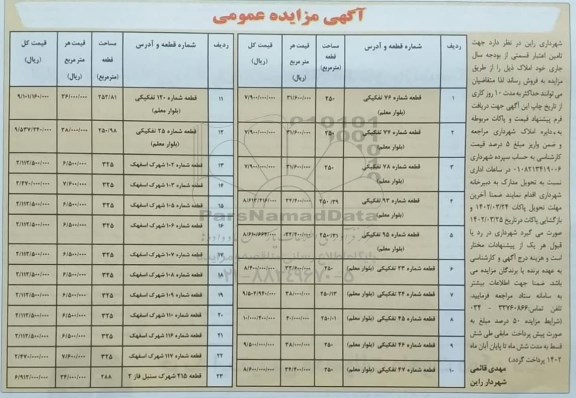 آگهی مزایده عمومی
شهرداری راین در نظر دارد جهت
تامین اعتبار قسمتی از بودجه سال
جاری خود املاک ذیل را از طریق
مزایده به فروش رساند لذا متقاضیان
می توانند حداکثر به مدت ۱۰ روز کاری
از تاریخ چاپ این آگهی جهت دریافت
فرم پیشنهاد قیمت و پاکات مربوطه
به دایره املاک شهرداری مراجعه
و ضمن واریز مبلغ ۵ درصد قیمت
کارشناسی به حساب سپرده شهرداری
در ساعات اداری
نسبت به تحویل مدارک به دبیرخانه
شهرداری اقدام نمایند ضمنا آخرین
مهلت تحویل پاکات ۱۴۰۲/۰۳/۲۴ و
بازگشایی پاکات در تاریخ ۱۴۰۲/۰۳/۲۵
صورت می گیرد شهرداری در رد یا
قبول هر یک از پیشنهادات مختار
است و هزینه درج آگهی و کارشناسی
به عهده برنده یا برندگان مزایده می
باشد. ضمنا جهت اطلاعات بیشتر
به سامانه ستاد مراجعه فرمایید.
تلفن تماس: ۳۳۷۶۰۸۶۶ - ۰۳۴
(شرایط مزایده ۵۰ درصد مبلغ به
صورت پیش پرداخت مابقی طی شش
قسط به مدت شش ماه تا پایان آبان ماه
۱۴۰۲ پرداخت گردد.)
مهدی قائمی
شهردار راین
ردیف شماره قطعه و آدرس مساحت قطعه (مترمربع) قیمت هر متر مربع (ریال) قیمت کل (ریال)
۱ قطعه شماره ۷۶ تفکیکی (بلوار معلم) ۲۵۰ ۳۱/۶۰۰/۰۰۰ ۷/۹۰۰/۰۰۰/۰۰۰
۲ قطعه شماره ۷۷ تفکیکی (بلوار معلم) ۲۵۰ ۳۱/۶۰۰/۰۰۰ ۷/۹۰۰/۰۰۰/۰۰۰
۳ قطعه شماره ۷۸ تفکیکی (بلوار معلم) ۲۵۰ ۳۱/۶۰۰/۰۰۰ ۷/۹۰۰/۰۰۰/۰۰۰
۴ قطعه شماره ۹۳ تفکیکی (بلوار معلم)
۵ قطعه شماره ۹۵ تفکیکی (بلوار معلم)
۶ قطعه شماره ۲۳ تفکیکی (بلوار معلم) ۲۵۰ ۳۳/۶۰۰/۰۰۰ ۸/۴۰۰/۰۰۰/۰۰۰
۷ قطعه شماره ۲۴ تفکیکی (بلوار معلم) ۲۵۰/۱۳ ۳۸/۰۰۰/۰۰۰ ۹/۵۰۴/۹۴۰/۰۰۰
۸ قطعه شماره ۴۵ تفکیکی (بلوار معلم) ۲۵۰/۰۱ ۴۰/۰۰۰/۰۰۰ ۱۰/۰۰۰/۴۰۰/۰۰۰
۹ قطعه شماره ۴۶ تفکیکی (بلوار معلم) ۲۵۰ ۳۸/۰۰۰/۰۰۰ ۹/۵۰۰/۰۰۰/۰۰۰
۱۰ قطعه شماره ۴۷ تفکیکی (بلوار معلم) ۲۵۰
ردیف شماره قطعه و آدرس مساحت قطعه (مترمربع) قیمت هر متر مربع (ریال) قیمت کل (ریال)
۱۱ قطعه شماره ۱۲۰ تفکیکی (بلوار معلم) ۲۵۲/۸۱ ۳۶/۰۰۰/۰۰۰ ۹/۱۰۱/۱۶۰/۰۰۰
۱۲ قطعه شماره ۲۵ تفکیکی (بلوار معلم) ۲۵۰/۹۸ ۳۸/۰۰۰/۰۰۰ ۹/۵۳۷/۲۴۰/۰۰۰
۱۳ قطعه شماره ۱۰۲ شهرک اسفهک ۳۲۵ ۶/۵۰۰/۰۰۰ ۲/۱۱۲/۵۰۰/۰۰۰
۱۴ قطعه شماره ۱۰۳ شهرک اسفهک ۳۲۵ ۷/۶۰۰/۰۰۰ ۲/۴۷۰/۰۰۰/۰۰۰
۱۵ قطعه شماره ۱۰۵ شهرک اسفهک ۳۲۵ ۶/۵۰۰/۰۰۰ ۲/۱۱۲/۵۰۰/۰۰۰
۱۶ قطعه شماره ۱۰۶ شهرک اسفهک ۳۲۵ ۶/۵۰۰/۰۰۰ ۲/۱۱۲/۵۰۰/۰۰۰
۱۷ قطعه شماره ۱۰۷ شهرک اسفهک ۳۲۵ ۶/۵۰۰/۰۰۰ ۲/۱۱۲/۵۰۰/۰۰۰
۱۸ قطعه شماره ۱۰۸ شهرک اسفهک ۳۲۵ ۶/۵۰۰/۰۰۰ ۲/۱۱۲/۵۰۰/۰۰۰
۱۹ قطعه شماره ۱۰۹ شهرک اسفهک ۳۲۵ ۶/۵۰۰/۰۰۰ ۲/۱۱۲/۵۰۰/۰۰۰
۲۰ قطعه شماره ۱۱۰ شهرک اسفهک ۳۲۵ ۶/۵۰۰/۰۰۰ ۲/۱۱۲/۵۰۰/۰۰۰
۲۱ قطعه شماره ۱۱۶ شهرک اسفهک ۳۲۵ ۶/۵۰۰/۰۰۰ ۲/۱۱۲/۵۰۰/۰۰۰
۲۲ قطعه شماره ۱۱۷ شهرک اسفهک ۳۲۵ ۷/۶۰۰/۰۰۰ ۲/۴۷۰/۰۰۰/۰۰۰
۲۳ قطعه ۲۱۵ شهرک سنبل فاز ۲ ۲۸۸ ۲۴/۰۰۰/۰۰۰ ۶/۹۱۲/۰۰۰/۰۰۰
ParsNamadData
۰۲۱-۸۸۳۴۹۶۷۰-۵